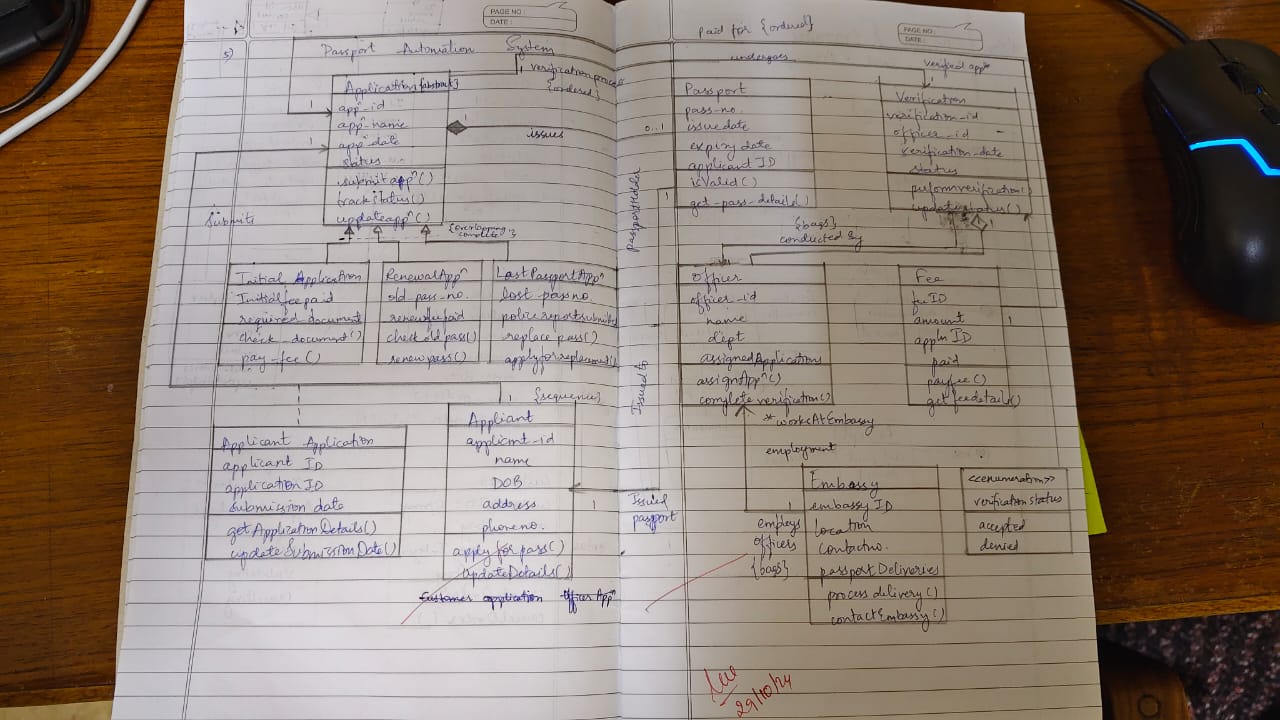 PAGE NO :
DATE :
5)
Passport Automation System
1 verification process
{ordered}
Application {abstract}
appⁿ-id
appⁿ-name
appⁿ date
status
submit appⁿ()
trackStatus()
updateappⁿ()
1
1
1
issues
0...1
submits
{overlapping
complete}
Initial Application
Initial fee paid
required_document
check_document()
pay-fee()
RenewalAppⁿ
old pass-no.
renewfeepaid
check old pass()
renew pass()
LastPassportAppⁿ
lost passno.
policereportsubmitted
replace pass()
applyforreplacement()
1 {sequence}
Applicant Application
applicant ID
application ID
submission date
getApplicationDetails()
updateSubmissionDate()
Appliant
applicmt-id
name
DOB
address
phoneno.
apply for pass()
updateDetails()
1
Customer application Officer Appⁿ
PAGE NO :
DATE :
Paid for {ordered}
undergoes
verified appⁿ
1
Passport
pass-no.
issuedate
expiry date
applicant ID
isValid()
get-pass-details()
Verification
verification-id
officer-id
verification-date
status
performverification()
updatestatus()
passportHolder
1
{bags}
conducted by
1
Officer
officer-id
name
dept
assignedApplications
assignAppⁿ()
complete verification()
Fee
feeID
amount
appln ID
paid
payfee()
getfeedetails()
1
Issued to
* worksAtEmbassy
employment
Issued
passport
1
employs
officers
{bags}
Embassy
embassy ID
location
contactno.
passportDeliveries
process delivery()
contactEmbassy()
<<enumeration>>
verification status
accepted
denied
29/10/24